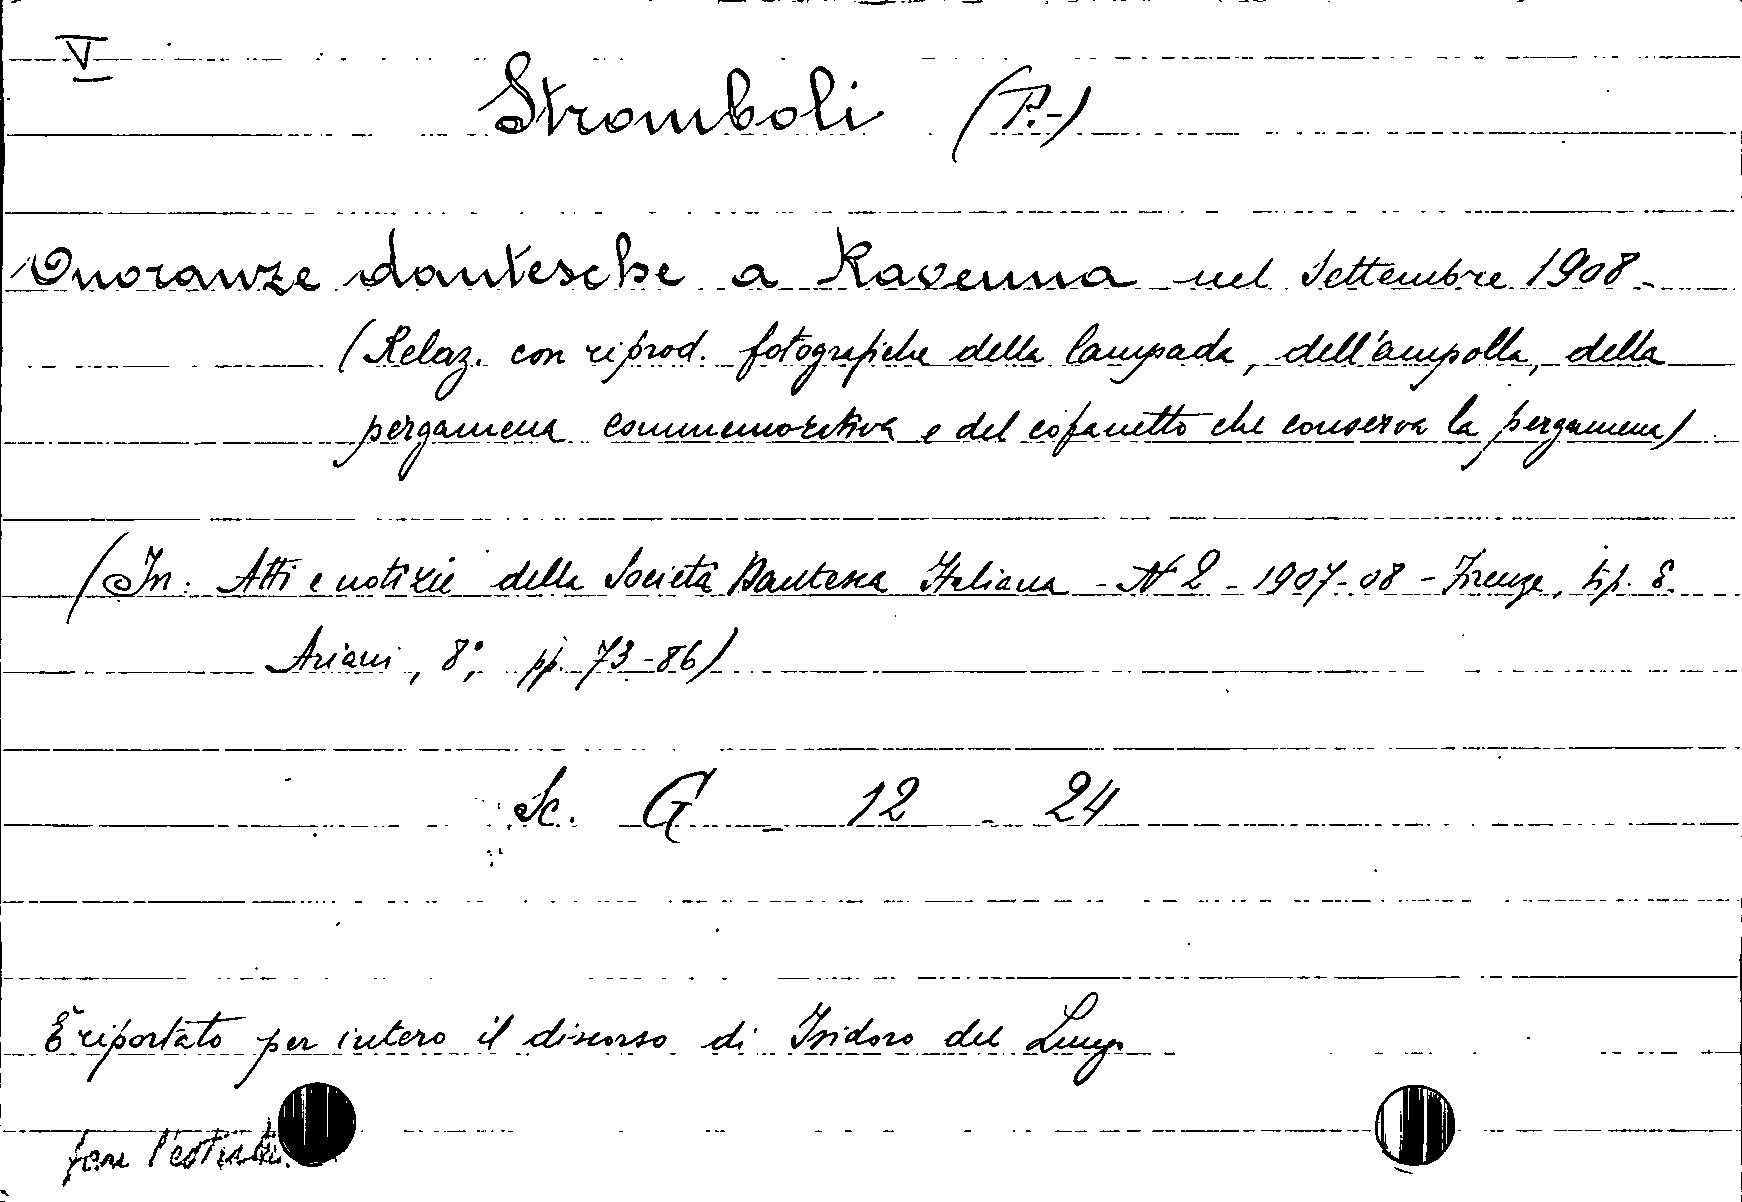 V
Stromboli (P.-)
Onoranze dantesche a Ravenna nel Settembre 1908 -
(Relaz. con riprod. fotografiche della lampada, dell'ampolla, della
pergamena commemorativa e del cofanetto che conserva la pergamena)
(In: Atti e notizie della Società Dantesca Italiana - N 2 - 1907-08 - Firenze, tip. E.
Ariani, 8°, pp. 73-86)
Sc. G - 12 - 24
È riportato per intero il discorso di Isidoro del Lungo
fare